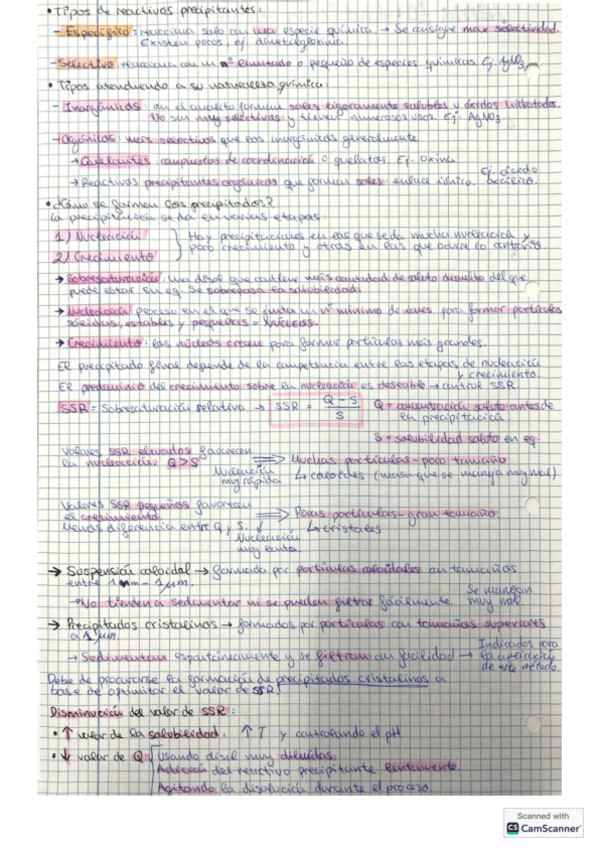 • Tipos de reactivos precipitantes:
- Específico: reacciona solo con una especie química. → Se consigue max selectividad.
Existen pocos, ej dimetilglioxima.
- Selectivo: reacciona con un nº limitado o pequeño de especies químicas. Ej. AgNO3
• Tipos atendiendo a su naturaleza química:
- Inorgánicos: con el analito forman sales ligeramente solubles u óxidos hidratados.
No son muy selectivos y tienen numerosos usos. Ej: AgNO3
- Orgánicos: más selectivos que los inorgánicos generalmente
→ Quelantes compuestos de coordinación o quelatos. Ej. Oxina
→ Reactivos precipitantes orgánicos que forman sales enlace iónico. Ej. ácido
• ¿Cómo se forman los precipitados?
La precipitación se da en varias etapas
1) Nucleación } Hay precipitaciones en las que se da mucha nucleación y
2) Crecimiento poco crecimiento y otras en las que ocurre lo contrario.
→ Sobresaturación: una disol que contiene más cantidad de soluto disuelto del que
puede estar en eq. Se sobrepasa la solubilidad.
→ Nucleación proceso en el que se junta un nº mínimo de iones para formar partículas
sólidas, estables y pequeñas = NÚCLEOS.
→ Crecimiento: los núcleos crecen para formar partículas más grandes.
El precipitado final depende de la competencia entre las etapas de nucleación
y crecimiento.
El predominio del crecimiento sobre la nucleación es deseable → control SSR.
SSR = Sobresaturación relativa → SSR = Q - S / S Q = concentración soluto antes de
la precipitación.
S = solubilidad soluto en eq
Valores SSR elevados favorecen
la nucleación. Q>S ⟹ Muchas partículas - poco tamaño
Nucleación muy rápida ↳ coloides (masa que se maneja muy mal)
Valores SSR pequeños favorecen
el crecimiento ⟹ Pocas partículas - gran tamaño.
Menos diferencia entre Q y S. ↓ ↳ cristales
Nucleación
muy lenta
→ Suspensión coloidal → formada por partículas coloidales con tamaños
entre 1nm - 1µm.
→ No tienden a sedimentar ni se pueden filtrar fácilmente. Se manejan muy mal.
→ Precipitados cristalinos → formados por partículas con tamaños superiores
a 1µm
→ Sedimentan espontáneamente y se filtran con facilidad → Indicados para
la aplicación
de este método.
Debe de procurarse la formación de precipitados cristalinos a
base de optimizar el valor de SSR.
Disminución del valor de SSR:
• ↑ valor de la solubilidad. ↑ T y controlando el pH
• ↓ valor de Q { Usando disol muy diluidas.
Adición del reactivo precipitante lentamente.
Agitando la disolución durante el proceso.
Scanned with
CS CamScanner